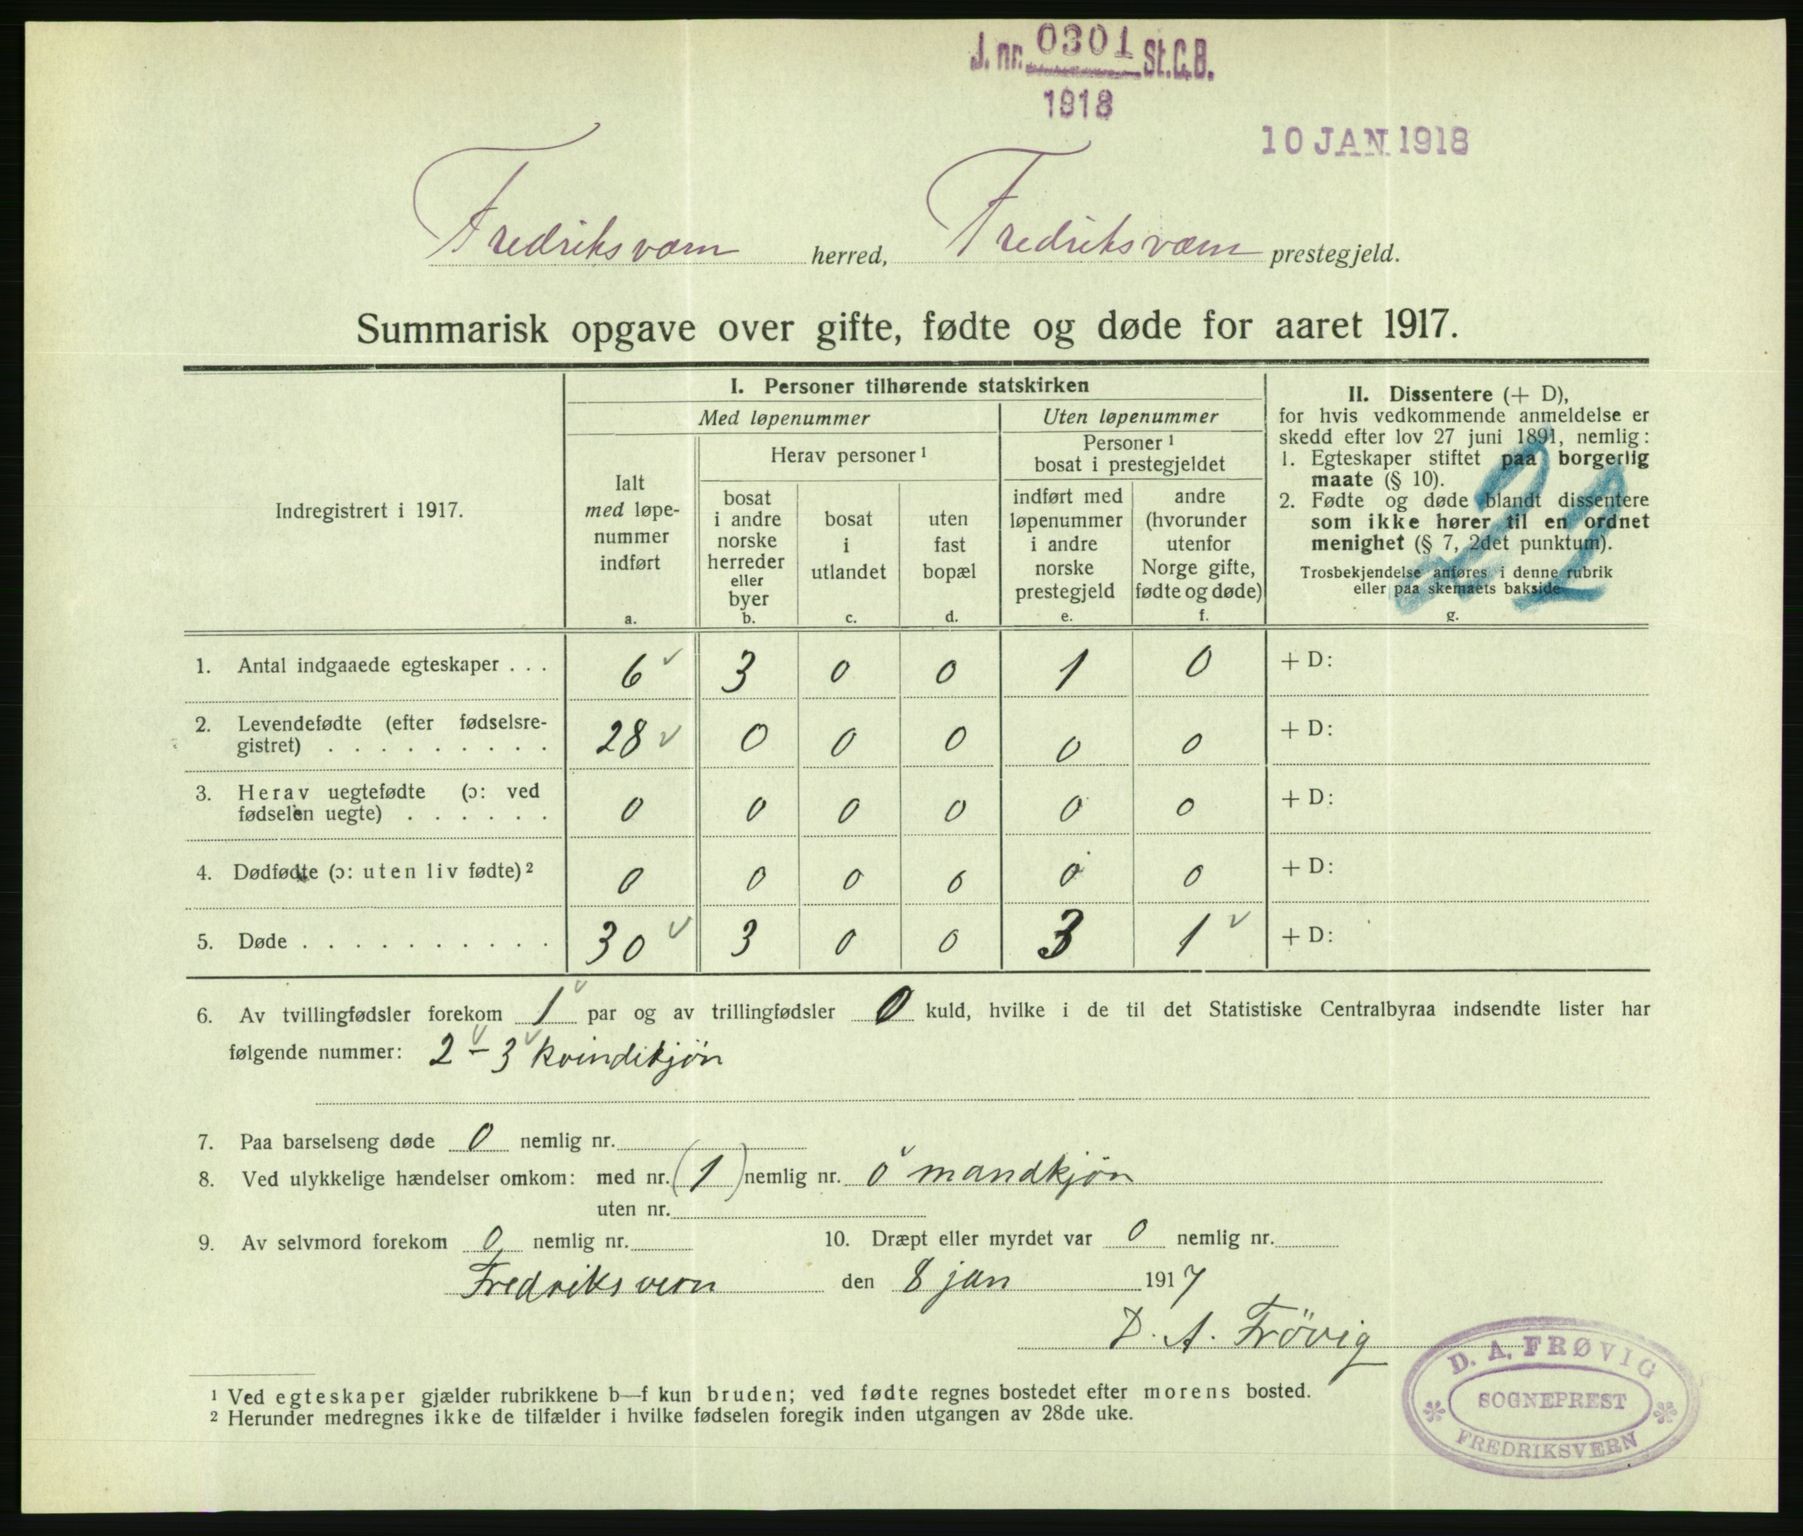 J. nr. 0301 St.C.B.
1918
10 JAN 1918
Fredriksværn herred, Fredriksværn prestegjeld.
Summarisk opgave over gifte, fødte og døde for aaret 1917.
Indregistrert i 1917.
I. Personer tilhørende statskirken
Med løpenummer
Uten løpenummer
Ialt
med løpe-
nummer
indført
a.
Herav personer 1
bosat
i andre
norske
herreder
eller
byer
b.
bosat
i
utlandet
c.
uten
fast
bopæl
d.
Personer 1
bosat i prestegjeldet
indført med
løpenummer
i andre
norske
prestegjeld
e.
andre
(hvorunder
utenfor
Norge gifte,
fødte og døde)
f.
II. Dissentere (+ D),
for hvis vedkommende anmeldelse er
skedd efter lov 27 juni 1891, nemlig:
1. Egteskaper stiftet paa borgerlig
maate (§ 10).
2. Fødte og døde blandt dissentere
som ikke hører til en ordnet
menighet (§ 7, 2det punktum).
Trosbekjendelse anføres i denne rubrik
eller paa skemaets bakside
g.
1. Antal indgaaede egteskaper . . . 6 ✓ 3 0 0 1 0 + D:
2. Levendefødte (efter fødselsre-
gistret) . . . . . . . . . 28 ✓ 0 0 0 0 0 + D:
3. Herav uegtefødte (ɔ: ved
fødselen uegte) . . . . . . 0 0 0 0 0 0 + D:
4. Dødfødte (ɔ: uten liv fødte) 2 0 0 0 0 0 0 + D:
5. Døde . . . . . . . . . . 30 ✓ 3 0 0 3 1 ✓ + D:
6. Av tvillingfødsler forekom 1 ✓ par og av trillingfødsler 0 kuld, hvilke i de til det Statistiske Centralbyraa indsendte lister har
følgende nummer: 2 ✓ – 3 ✓ kvindekjøn
7. Paa barselseng døde 0 nemlig nr.
8. Ved ulykkelige hændelser omkom: med nr. (1) nemlig nr. 0 ✓ mandkjøn
uten nr.
9. Av selvmord forekom 0 nemlig nr. 10. Dræpt eller myrdet var 0 nemlig nr.
Fredriksvern den 8 jan 1917
D. A. Frövig
D. A. FRØVIG
SOGNEPREST
FREDRIKSVERN
1 Ved egteskaper gjælder rubrikkene b—f kun bruden; ved fødte regnes bostedet efter morens bosted.
2 Herunder medregnes ikke de tilfælder i hvilke fødselen foregik inden utgangen av 28de uke.